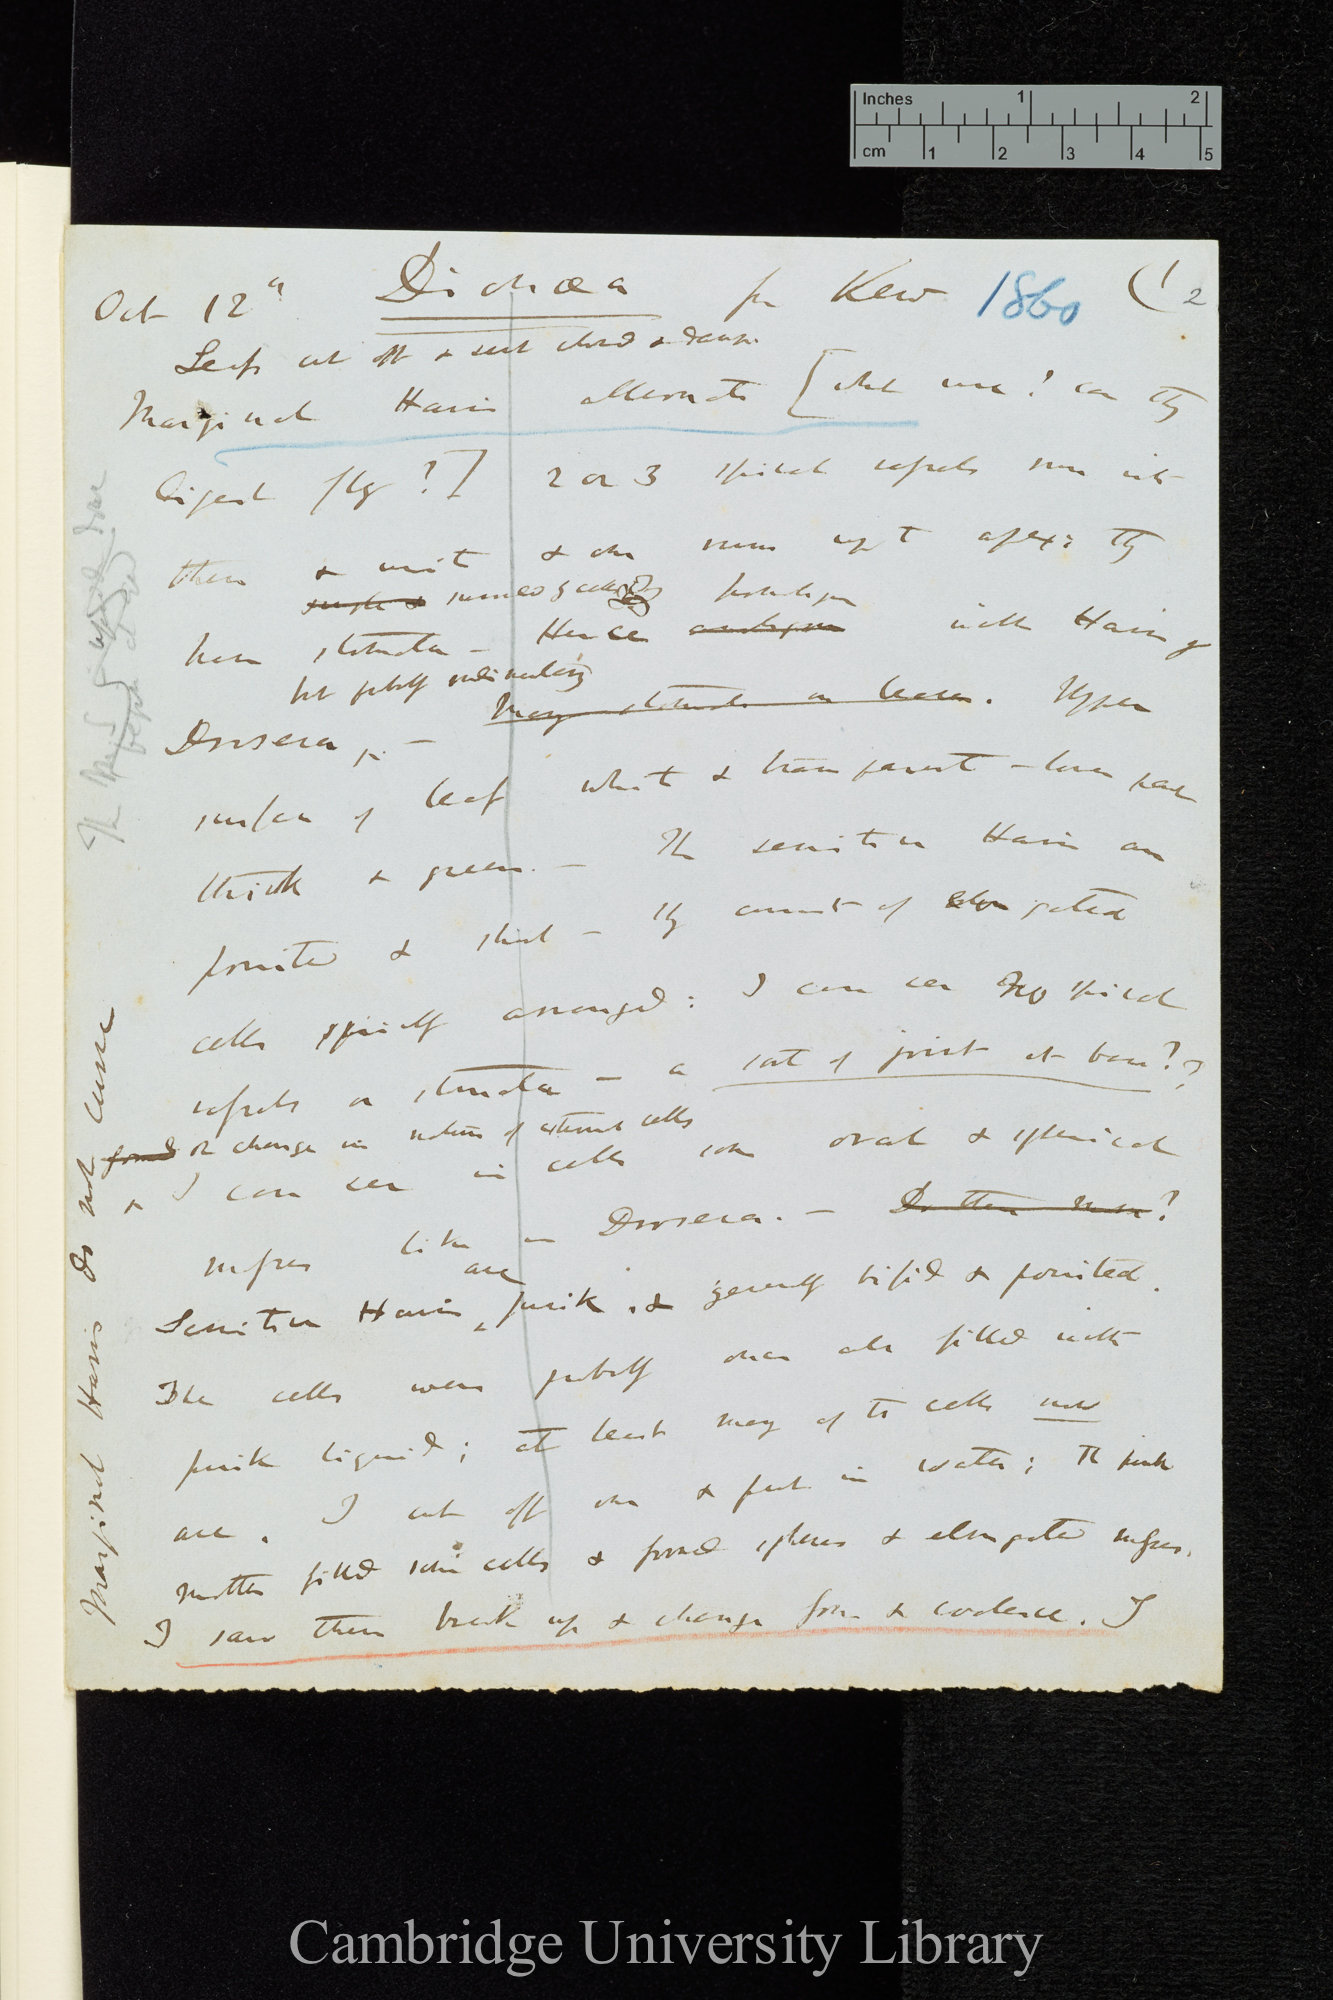 Inches 1 2
cm 1 2 3 4 5
Oct 12th Dionæa fr Kew 1860 (1 2
Leafs cut off & sent closed & damp.
Marginal Hairs alternate [what use? can they
digest fly?] 2 or 3 spiral vessels run into
them & unite & one runs up to apex: they
have stomata — Hence homologous with Hairs of
but probably rudimentary
Drosera, — many stomata on leaves. Upper
surface of leaf white & transparent — lower part
thick & green. — The sensitive Hairs are
pointed & short — they consist of elongated
cells spirally arranged: I can see no spiral
vessels or stomata — a sort of joint at base??
or change in nature of external cells
& I can see in cells some oval & spherical
masses like in Drosera. — Do these move?
Sensitive Hairs are pink, & generally bifid & pointed.
The cells were probably once all filled with
pink liquid; at least many of the cells now
are. I cut off one & put in water; the pink
matter filled some cells & formed spheres & elongated masses.
I saw them break up & change form & coalesce. I
Marginal Hairs do not curve
Cambridge University Library